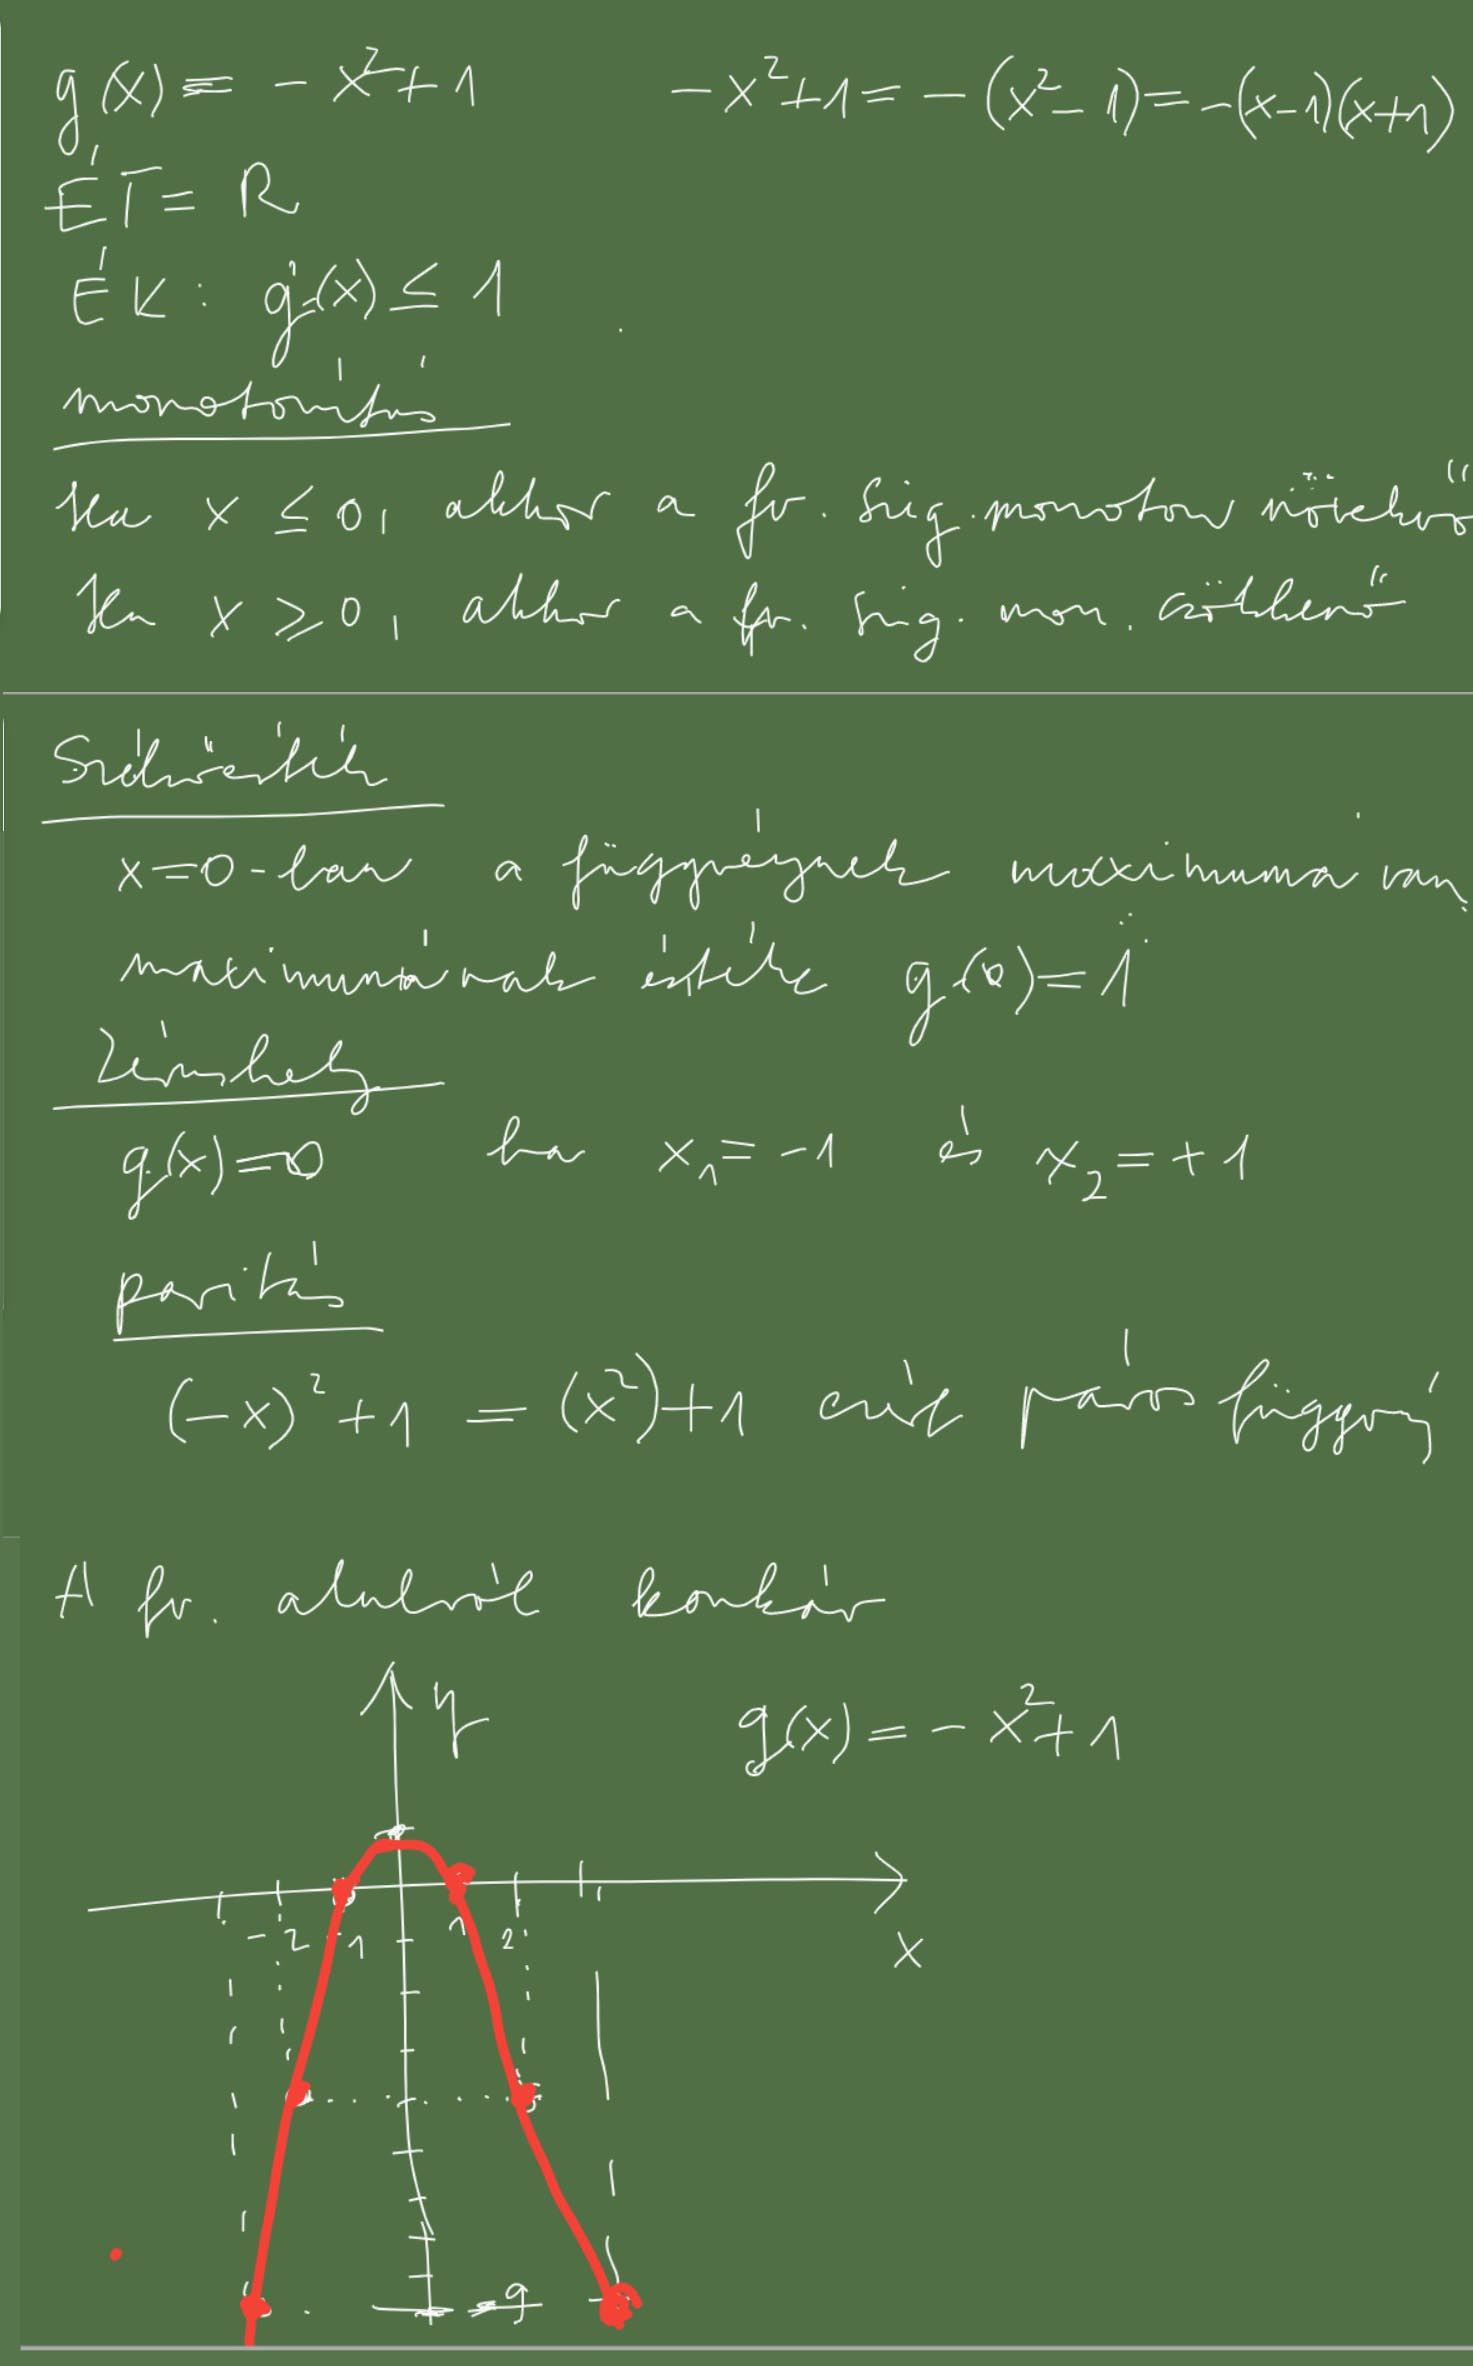 g(x) = -x²+1 -x²+1 = -(x²-1) = -(x-1)(x+1)
ÉT = R
ÉK: g(x) ≤ 1
monotonitás
Ha x ≤ 0, akkor a fv. szig. monoton növekvő
Ha x ≥ 0, akkor a fv. szig. mon. csökkenő
Szélsőérték
x=0-ban a függvénynek maximuma van,
maximumának értéke g(0)=1
Zérushely
g(x)=0 ha x₁=-1 és x₂=+1
paritás
(-x)²+1 = (x²)+1 páros függvény
A fv. alulról konkáv
y g(x) = -x²+1
-2 -1 1 2
x
-9